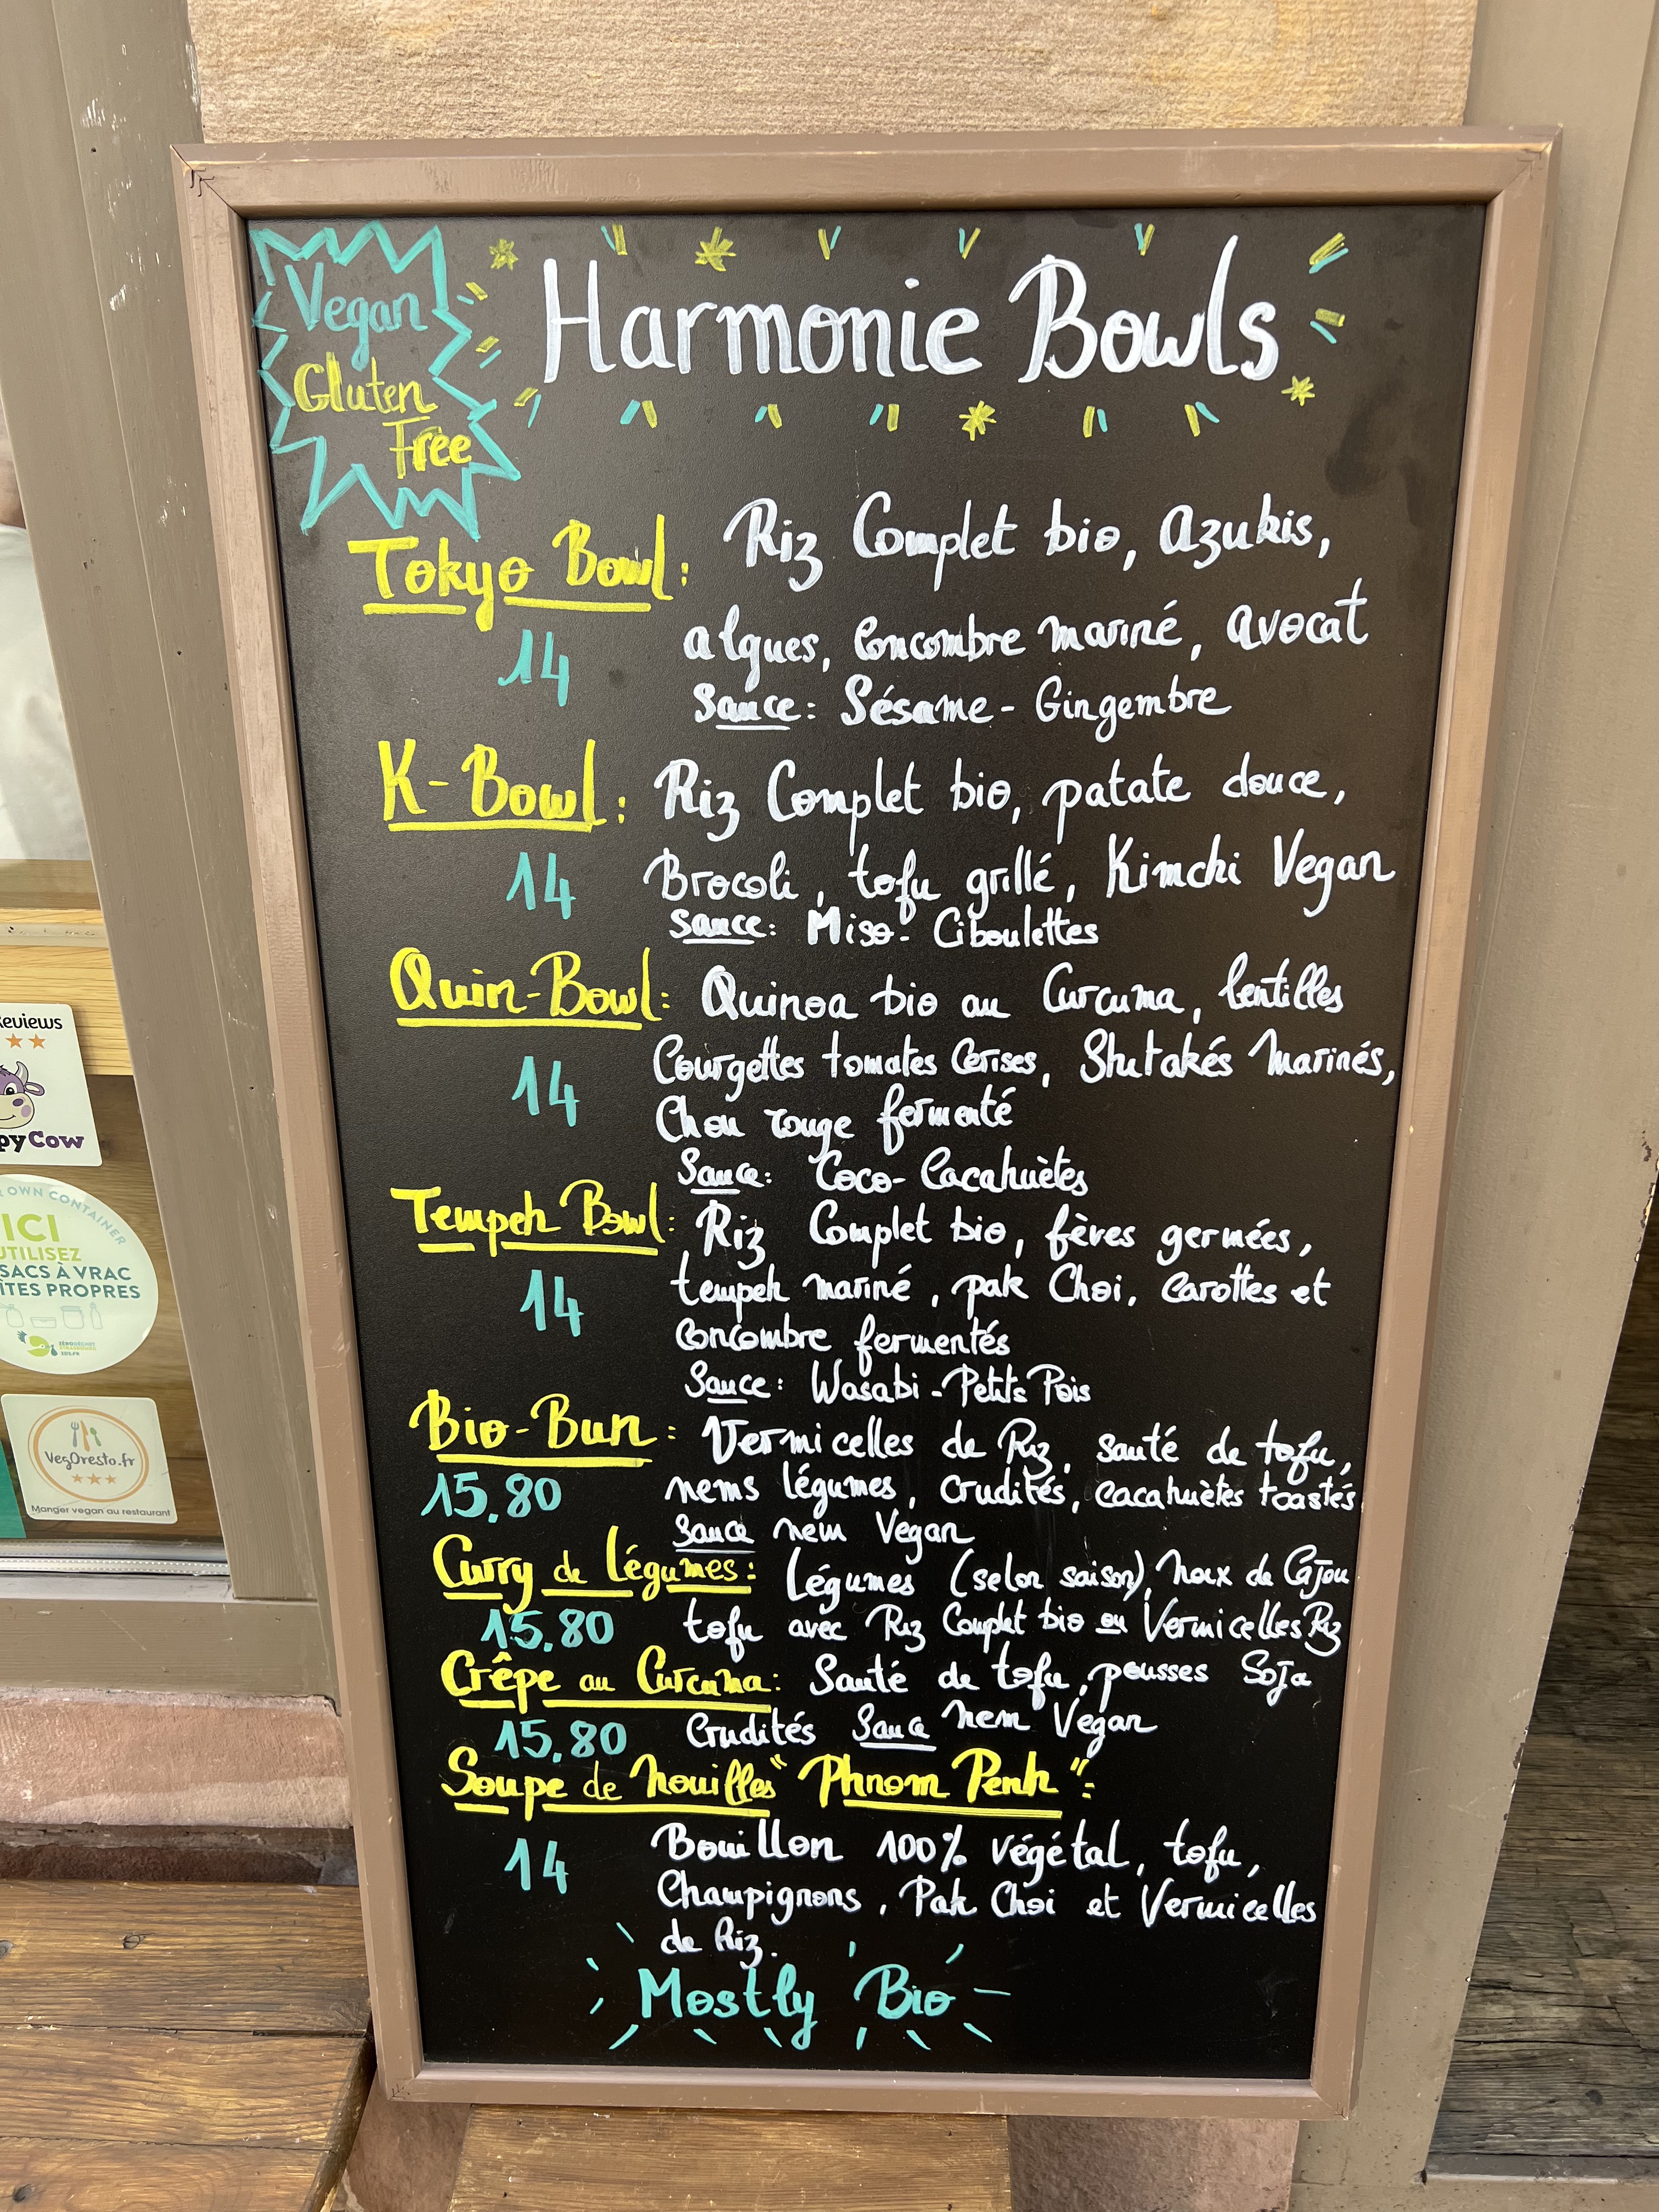 Vegan
Gluten
Free
Harmonie Bowls
Tokyo Bowl: Riz Complet bio, azukis,
14 algues, Concombre mariné, avocat
Sauce: Sésame - Gingembre
K-Bowl: Riz Complet bio, patate douce,
14 Brocoli, tofu grillé, Kimchi Vegan
Sauce: Miso - Ciboulettes
Quin-Bowl: Quinoa bio au Curcuma, lentilles
14 Courgettes tomates Cerises, Shitakés Marinés,
Chou rouge fermenté
Sauce: Coco-Cacahuètes
Tempeh Bowl: Riz Complet bio, fèves germées,
14 tempeh mariné, pak Choi, Carottes et
Concombre fermentés
Sauce: Wasabi - Petits Pois
Bio-Bun: Vermicelles de Riz, sauté de tofu,
15,80 nems légumes, Crudités, Cacahuètes toastés
Sauce nem Vegan
Curry de Légumes: Légumes (selon saison), Noix de Cajou
15,80 tofu avec Riz Complet bio ou Vermicelles Riz
Crêpe au Curcuma: Sauté de tofu, pousses Soja
15,80 Crudités Sauce Nem Vegan
Soupe de Nouilles "Phnom Penh":
14 Bouillon 100% végétal, tofu,
Champignons, Pak Choi et Vermicelles
de Riz.
Mostly Bio
eviews
pyCow
OWN CONTAINER
ICI
UTILISEZ
SACS À VRAC
ÎTES PROPRES
VegOresto.fr
Manger vegan au restaurant